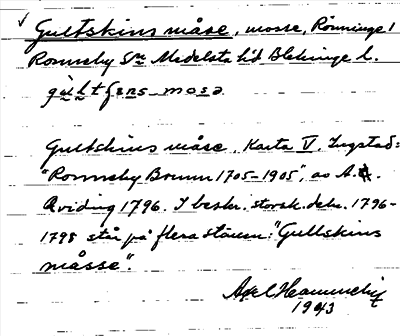 Gultskins måse, mosse, Rönninge 1
Ronneby Sn Medelsta hd Blekinge l.
Gultskins måse, Karta V. Ingstad:
"Ronneby Brunn 1705-1905", av A.
Qviding 1796. I beskr. storsk. dela. 1796-
1798 står på flera ställen: "Gultskins
måsse".
Axel
1943